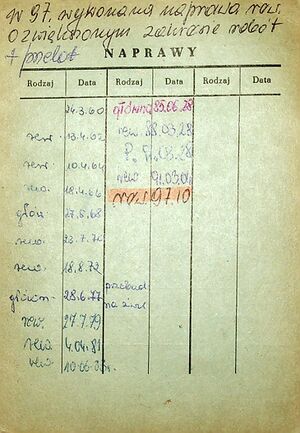 W 97. wykonana naprawa rew.
O zwiększonym zakresie robót
+ przelot
NAPRAWY
Rodzaj Data Rodzaj Data Rodzaj Data
24.3.60 główna 85.06.28
rew. 13.4.62 rew. 88.03.28
rew. 10.4.64 P.
rew. 18.4.66 rew
główn. 27.5.68 rew 97.10
rew.
rew. 18.8.72
główn. 28.6.77 przebud
rew. 27.7.79
rew. 4.04.81
rew. 10.06.83